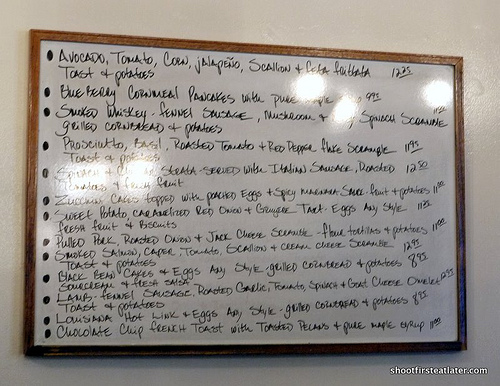 Avocado, Tomato, Corn, jalapeño, Scallion & Feta frittata 12.25
Toast & potatoes
Blueberry Cornmeal Pancakes with pure maple
Smoked Whiskey-Fennel Sausage, Mushroom & Spinach Scramble
grilled cornbread & potatoes
Prosciutto, Basil, Roasted Tomato & Red Pepper flake Scramble 11.95
Toast & potatoes
Spinach & Strata-served with Italian Sausage, Roasted 12.50
Tomatoes & fresh fruit
Zucchini Cakes topped with poached Eggs & Spicy marinara Sauce-fruit & potatoes
Sweet Potato, caramelized Red Onion & Gruyere Tart-Eggs Any Style
fresh fruit & Biscuits
Pulled Pork, Roasted Onion & Jack Cheese Scramble-flour tortillas & potatoes
Smoked Salmon, Caper, Tomato, Scallion & cream cheese Scramble 12.95
Toast & potatoes
Black Bean Cakes & Eggs Any Style-grilled cornbread & potatoes 8.95
Sourcream & fresh salsa
Lamb-fennel Sausage, Roasted Garlic, Tomato, Spinach & Goat Cheese Omelet
Toast & potatoes
Louisiana Hot Link & Eggs Any Style-grilled cornbread & potatoes 8.95
Chocolate Chip french Toast with Toasted Pecans & pure maple syrup
shootfirsteatlater.com